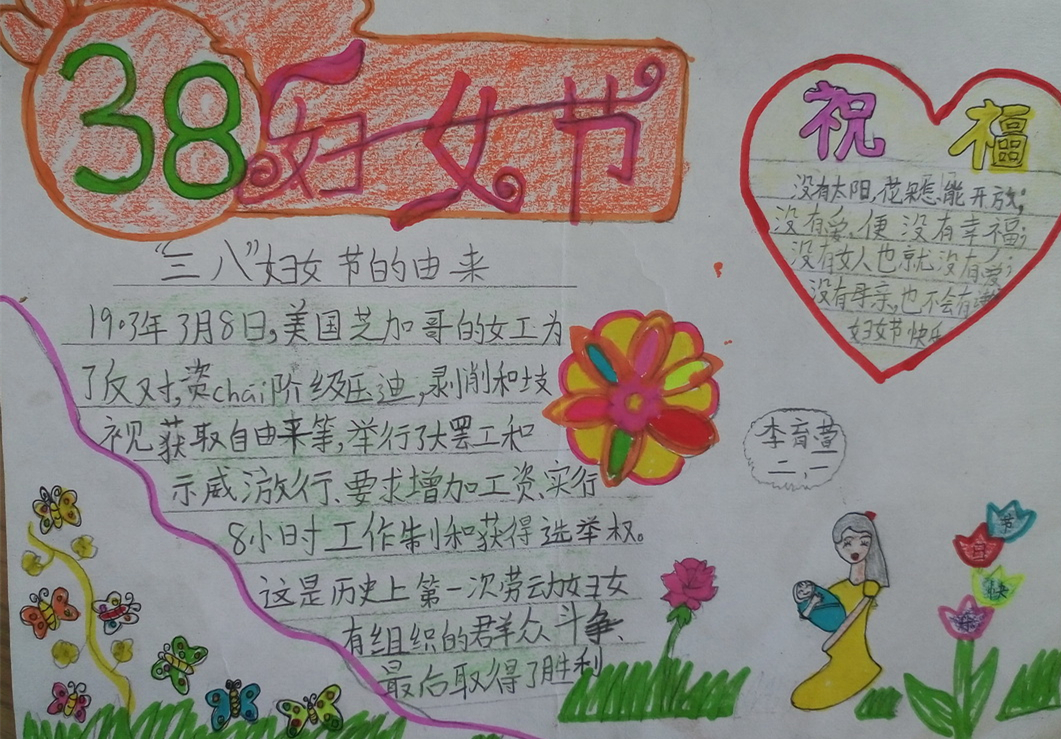 38妇女节
"三八"妇女节的由来
1903年3月8日,美国芝加哥的女工为
了反对,资chai阶级压迪,剥削和歧
视获取自由来等,举行了大罢工和
示威游放行、要求增加工资、实行
8小时工作制和获得选举权。
这是历史上第一次劳动妇女
有组织的群众斗争、
最后取得了胜利
祝福
没有太阳,花朵怎能开放;
没有爱,便没有幸福;
没有女人也就没有爱;
没有母亲,也不会有
妇女节快乐
李育萱
二,一
节
日
快
乐